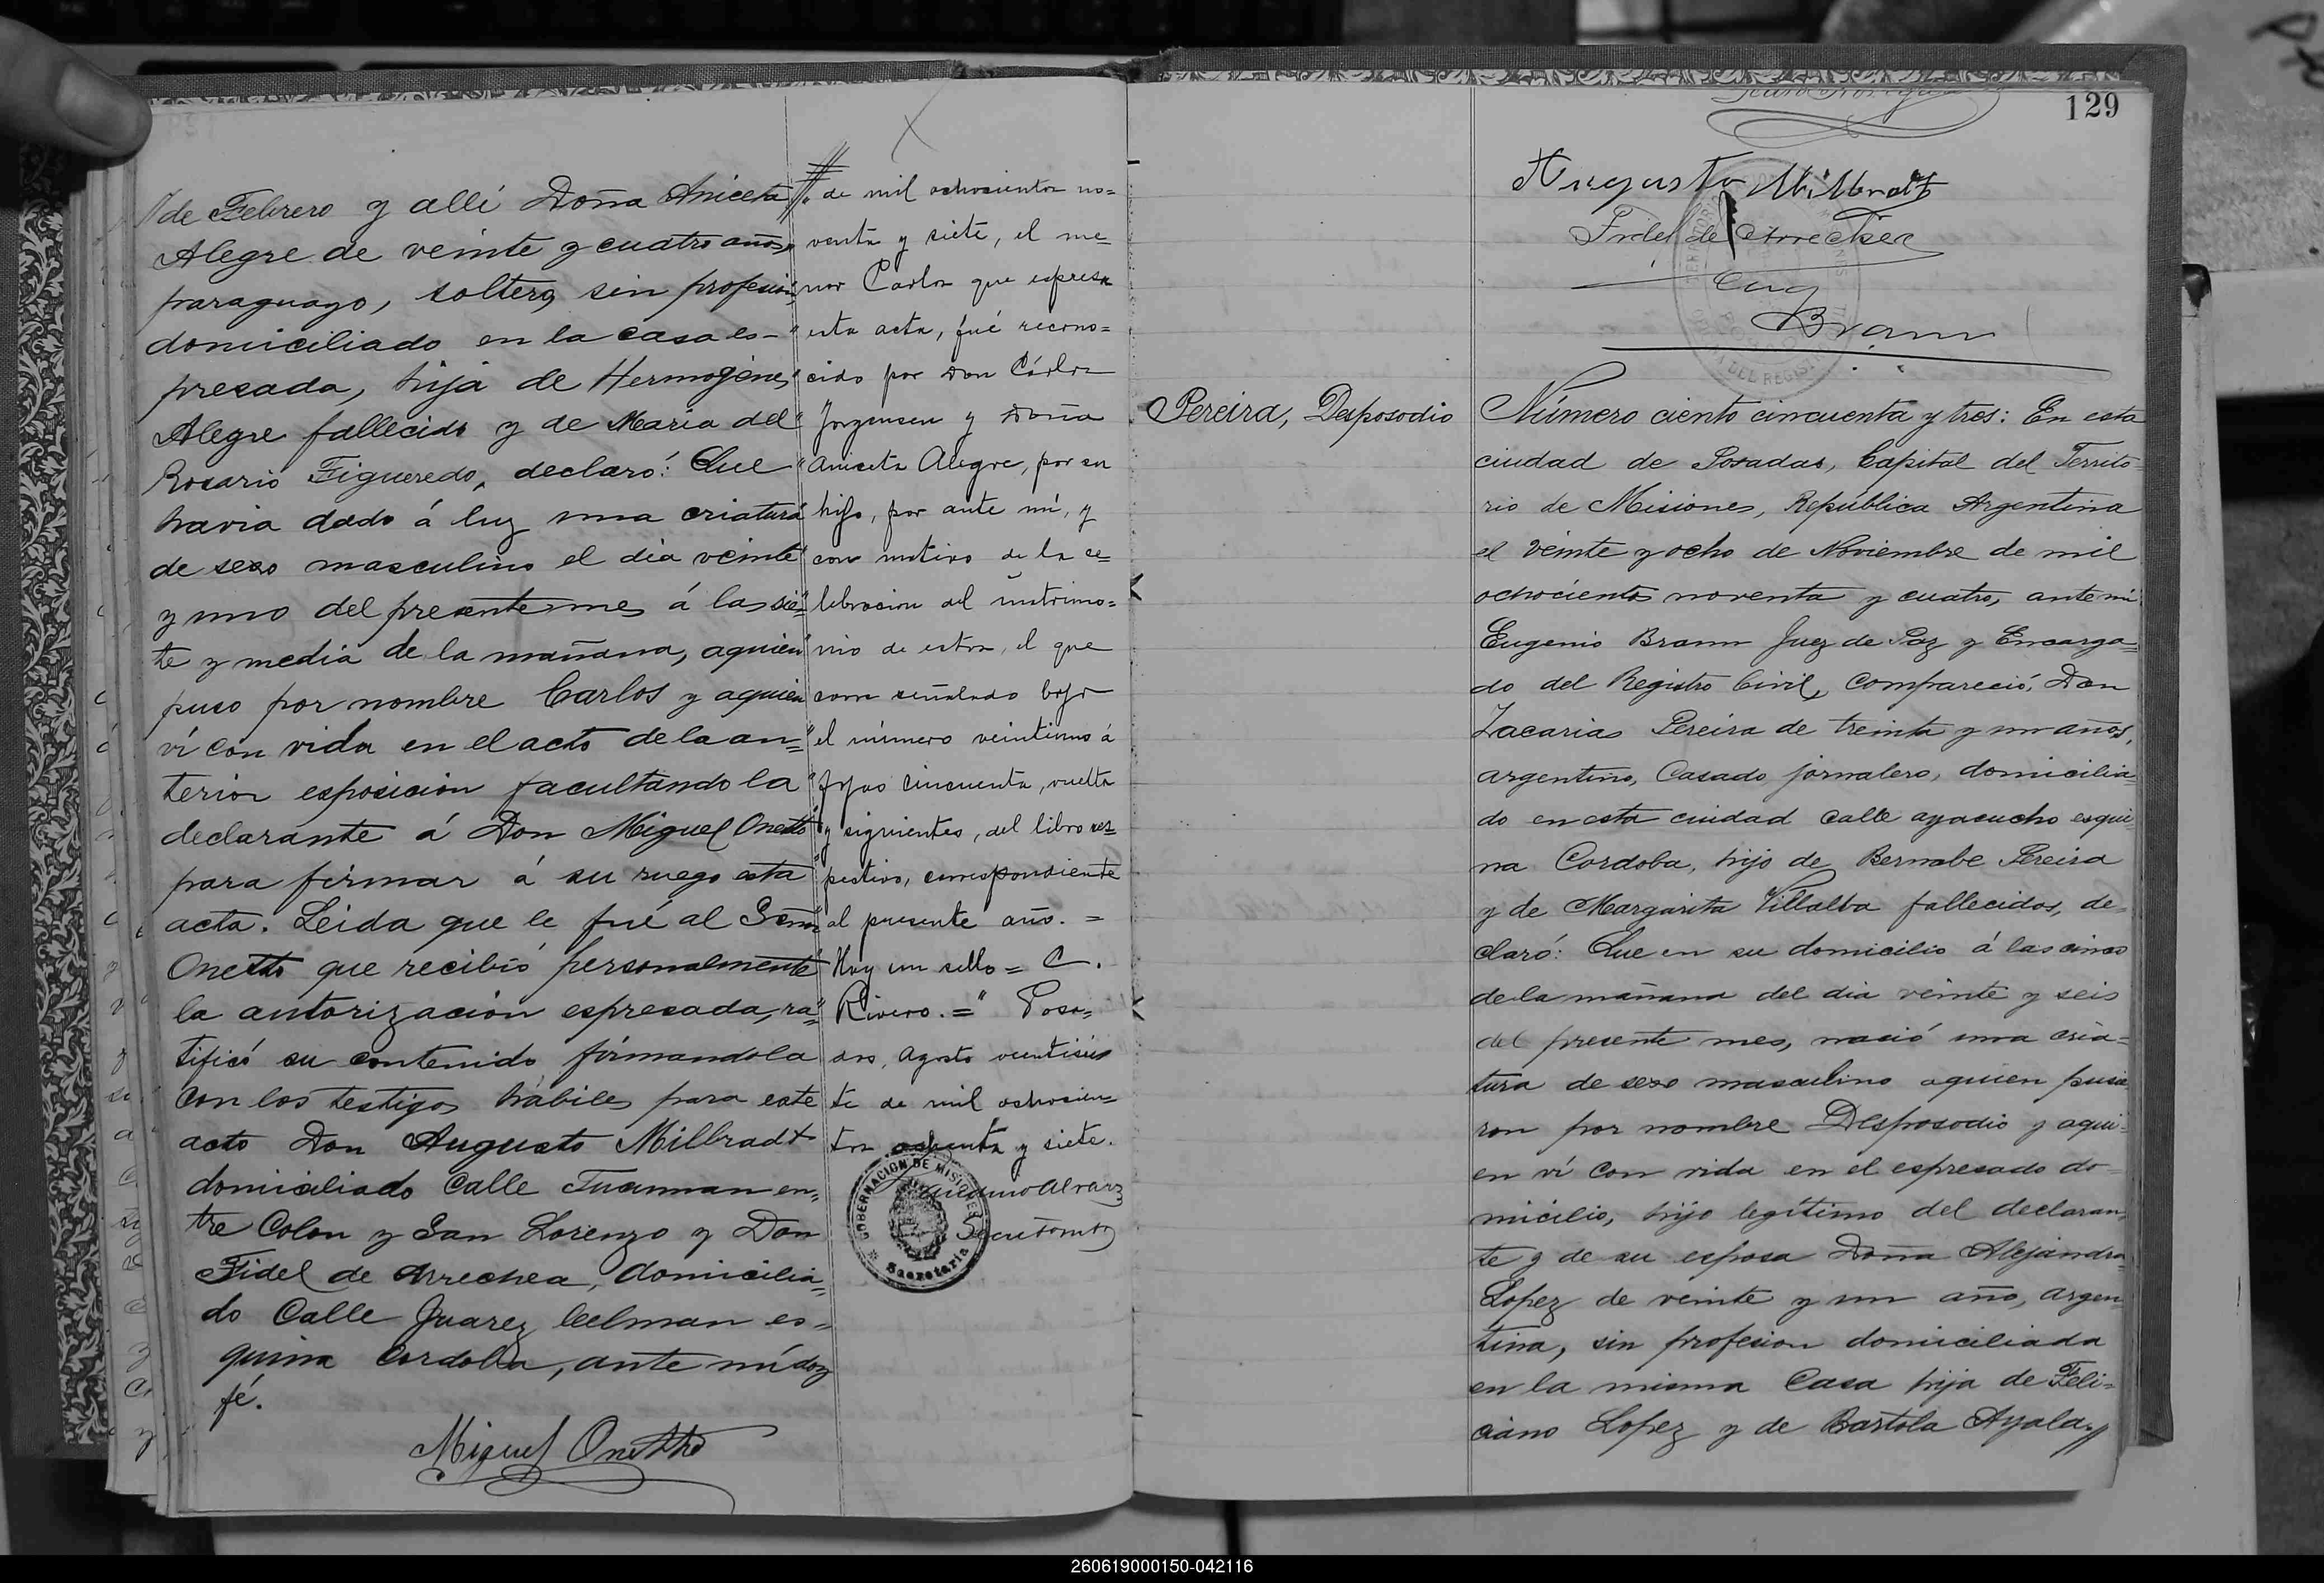 de Febrero y allí Doña Aniceta
Alegre de veinte y cuatro años,
paraguayo, soltera, sin profesion,
domiciliado en la casa es-
presada, hija de Hermogenes
Alegre fallecido y de María del
Rosario Figueredo, declaró: Que
havia dado á luz una criatura
de sexo masculino el dia veinte
y uno del presente mes á las sie-
te y media de la mañana, aquien
puso por nombre Carlos y aquien
ví con vida en el acto de la an-
terior esposicion facultando la
declarante á Don Miguel Onetto
para firmar á su ruego esta
acta. Leida que le fué al Señor
Onetto que recibió personalmente
la autorización espresada, ra-
tificó su contenido firmandola
con los testigos hábiles para este
acto Don Augusto Milbradt
domiciliado Calle Tucuman en-
tre Colon y San Lorenzo y Don
Fidel de Arrechea, domicilia-
do Calle Juarez Celman es-
quina Cordoba, ante mí doy
fé.
Miguel Onetto
de mil ochocientos no-
venta y siete, el me-
nor Carlos que espresa
esta acta, fué recono-
cido por Don Cárlos
Jorgensen y Doña
Aniceta Alegre, por su
hijo, por ante mí, y
con motivo de la ce-
lebracion del matrimo-
nio de estos, el que
corre señalado bajo
el número veintiuno á
fojas cincuenta, vuelta
y siguientes, del libro res-
pectivo, correspondiente
al presente año. =
Hay un sello = C.
Rivero. =" Posa-
das, Agosto veintisie
te de mil ochocien-
tos ochenta y siete.
Alvarez
Secretario
GOBERNACION DE MISIONES
Secretaria
129
Augusto Milbradt
Fidel de Arrechea
Eug
Braun
Pereira, Desposodio
Número ciento cincuenta y tres: En esta
ciudad de Posadas, Capital del Territo-
rio de Misiones, República Argentina
el veinte y ocho de Noviembre de mil
ochocientos noventa y cuatro, ante mi
Eugenio Braun Juez de Paz y Encarga-
do del Registro Civil, compareció, Don
Zacarias Pereira de treinta y un años,
argentino, Casado, jornalero, domicilia-
do en esta ciudad calle ayacucho esqui-
na Cordoba, hijo de Bernabe Pereira
y de Margarita Villalba fallecidos, de-
claró: Que en su domicilio á las cinco
de la mañana del dia veinte y seis
del presente mes, nació una cria-
tura de sexo masculino aquien pusie
ron por nombre Desposodio y aqui-
en ví con vida en el espresado do-
micilio, hijo legítimo del declaran-
te y de su esposa Doña Alejandra
Lopez de veinte y un año, argen-
tina, sin profesion domiciliada
en la misma Casa hija de Feli-
ciano Lopez y de Bartola Ayala,
260619000150-042116